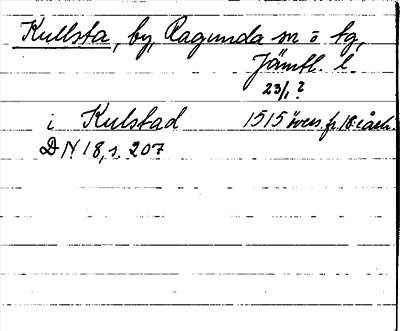 Kullsta, by, Ragunda sn o tg,
Jämtl. l.
23/1 ?
i Kulstad 1515 övers. fr. 18:e årh.
DN 18, s. 207